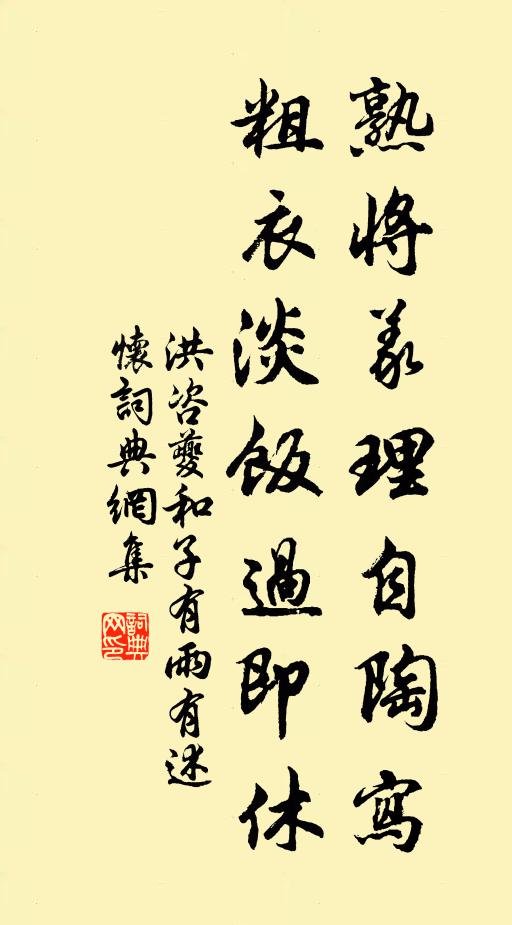 熟將義理自陶寫
粗衣淡飯過即休
洪咨夔和子有雨有述
懷詞典網集
詞典
网印